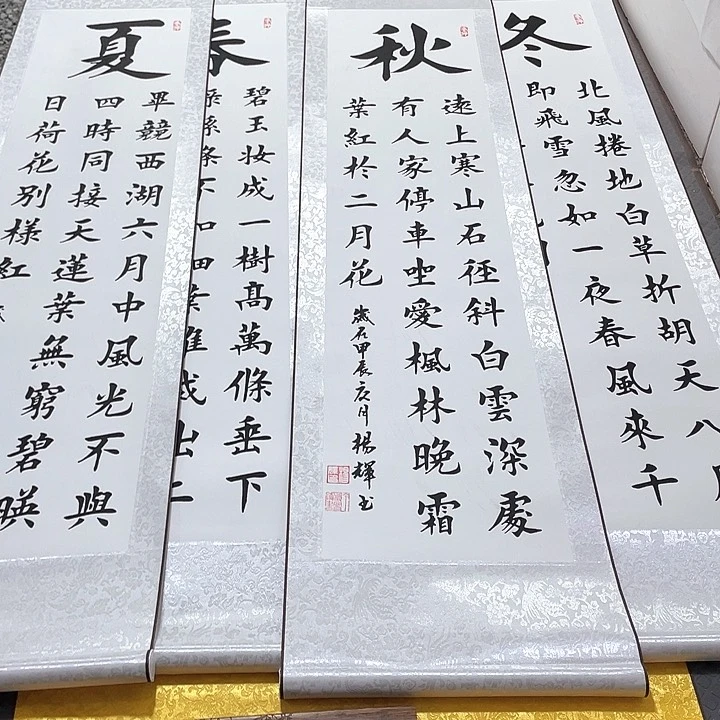 夏
畢競西湖六月中風光不與
四時同接天蓮葉無窮碧暎
日荷花別樣紅
春
碧玉妝成一樹高萬條垂下
綠絲條不知細葉誰裁出二
秋
遠上寒山石徑斜白雲深處
有人家停車坐愛楓林晚霜
葉紅於二月花
歲在甲辰夏月楊輝書
冬
北風捲地白草折胡天八月
即飛雪忽如一夜春風來千